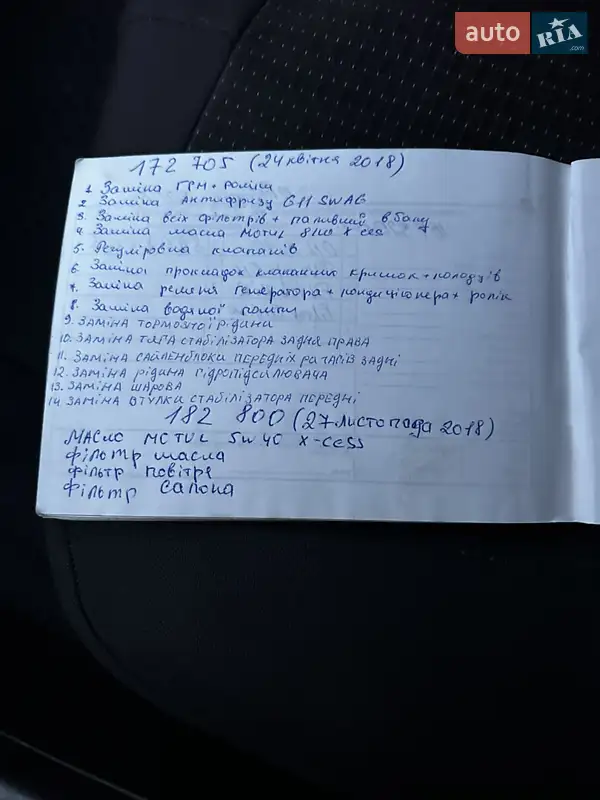 auto RIA .com
172 705 (24 квітня 2018)
1. Заміна ГРМ + роліки
2. Заміна Антифризу G11 SWAG
3. Заміна всіх фільтрів + паливний в баку
4. Заміна масла Motul 8100 X-cess
5. Регуліровка клапанів
6. Заміна прокладок клапанних кришок + колодців
7. Заміна ременя генератора + кондиціонера + ролік
8. Заміна водяної помпи
9. ЗАМІНА ТОРМОЗНОЇ РІДИНИ
10. ЗАМІНА ТЯГА СТАБІЛІЗАТОРА ЗАДНЯ ПРАВА
11. ЗАМІНА САЙЛЕНБЛОКИ ПЕРЕДНІХ РИЧАГІВ ЗАДНІ
12. ЗАМІНА РІДИНА ГІДРОПІДСИЛЮВАЧА
13. ЗАМІНА ШАРОВА
14. ЗАМІНА ВТУЛКИ СТАБІЛІЗАТОРА ПЕРЕДНІ
182 800 (27 листопада 2018)
МАСЛО MOTUL 5W40 X-CESS
Фільтр масла
Фільтр повітря
Фільтр салона